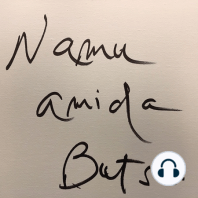 Namu
amida
Buts